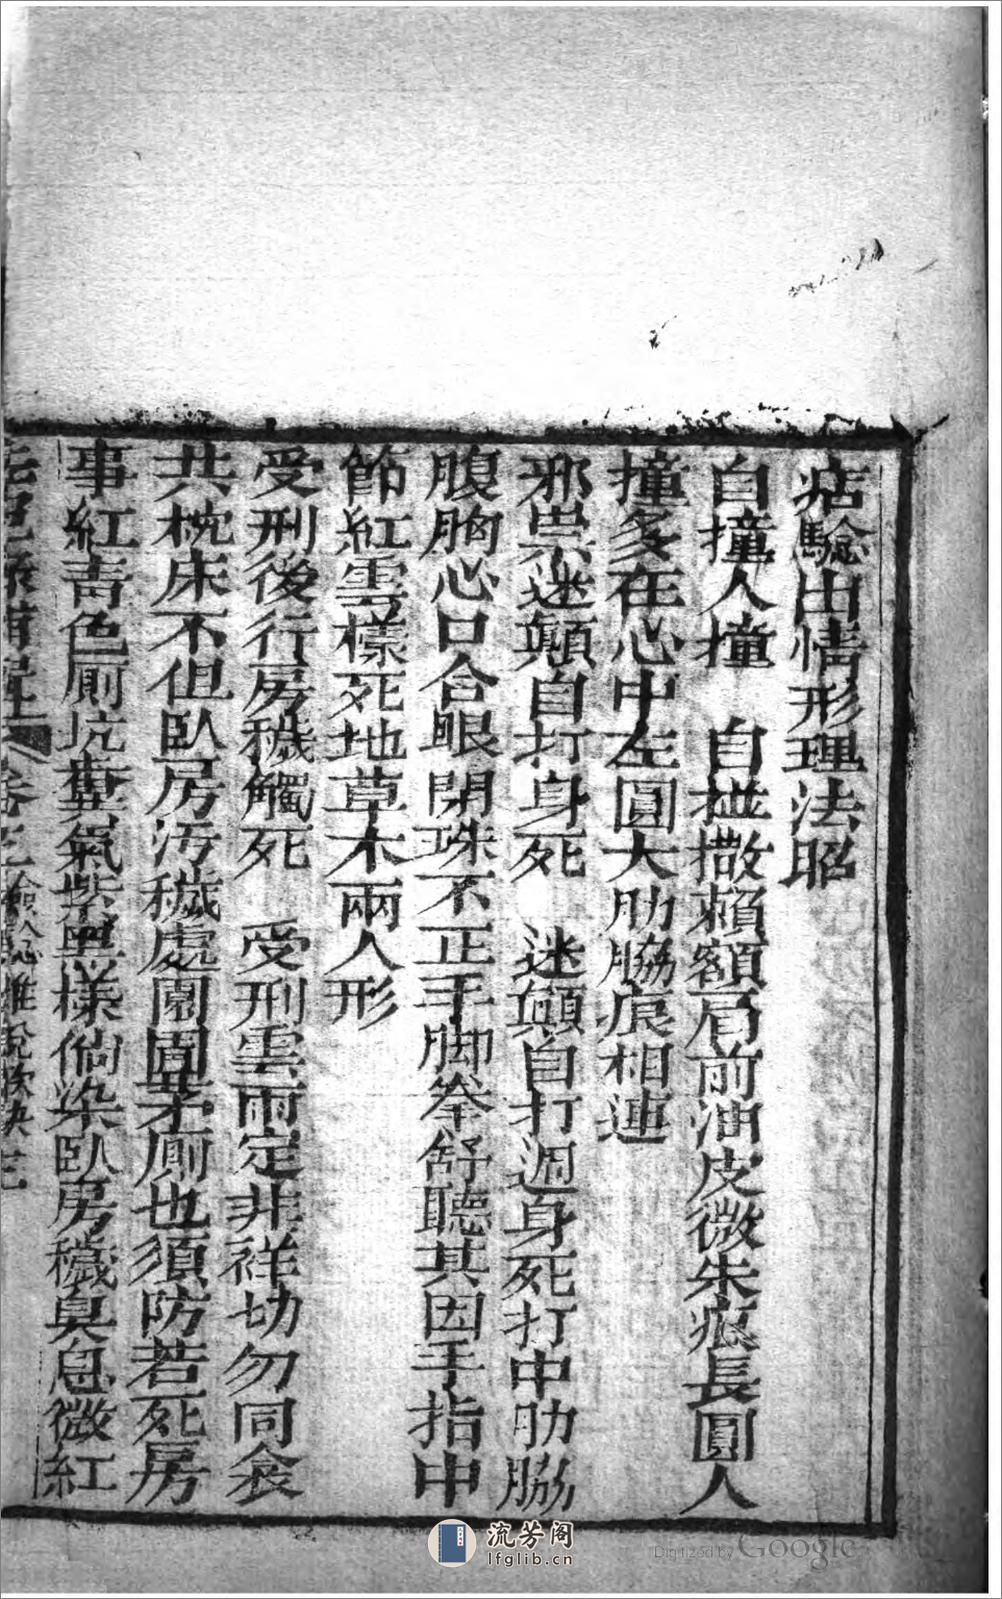 痁驗由情形理法昭
自撞人撞　自撞撒賴額眉前油皮微朱痕長圓人
撞多在心中左圓大肋脇痕相連
邪祟迷顛自打身死　迷顛自打週身死打中肋脇
腹胸心口合眼閉珠不正手脚拳舒聽其因手指中
節紅雲樣死地草木兩人形
受刑後行房穢觸死　受刑雲雨定非祥切勿同衾
共枕床不但臥房汚穢處園圊茅厠也須防若死房
事紅青色厠坑糞氣紫黑樣倘染臥房穢臭息微紅
卷之 驗 雜說歌訣 三
流芳阁
lfglib.cn
Digitized by Google